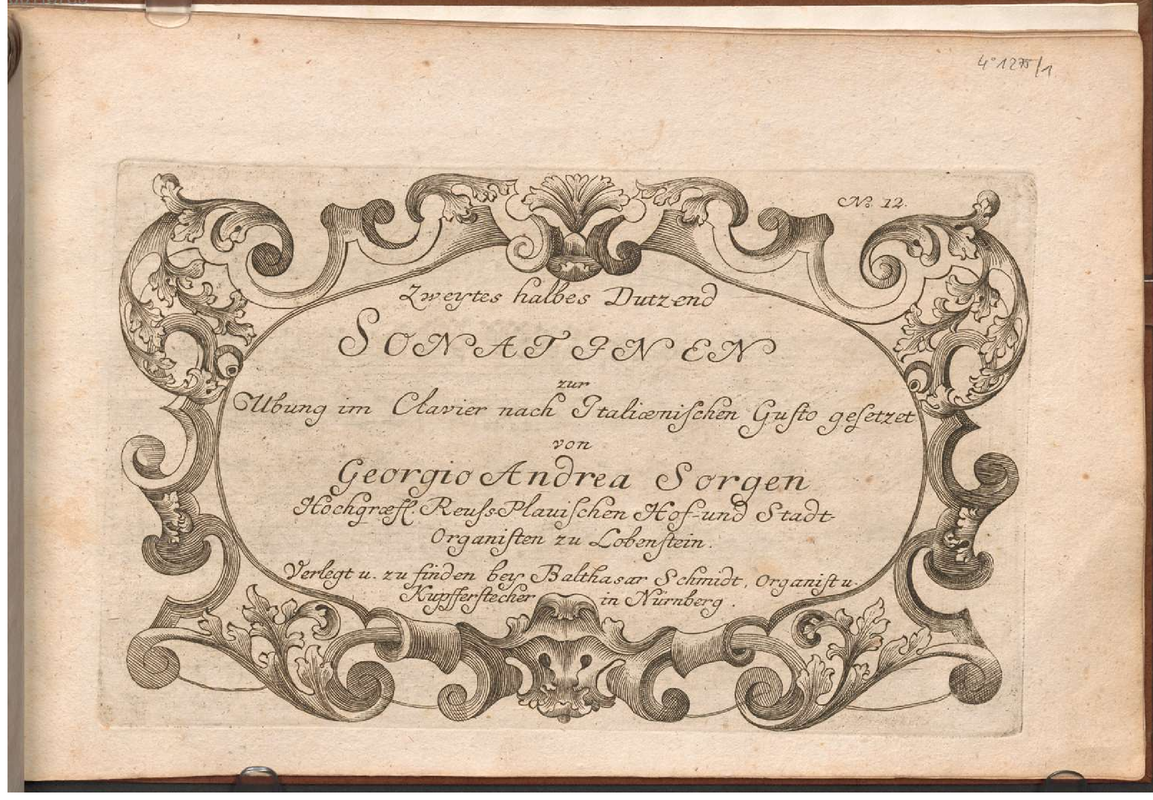 4° 1275/1
No. 12.
Zweytes halbes Dutzend
SONATINEN
zur
Ubung im Clavier nach Italiænischen Gusto gesetzet
von
Georgio Andrea Sorgen
Hochgræfl. Reuss-Plauischen Hof-und Stadt-
Organisten zu Lobenstein.
Verlegt u. zu finden bey Balthasar Schmidt, Organist u.
Kupfferstecher in Nürnberg.